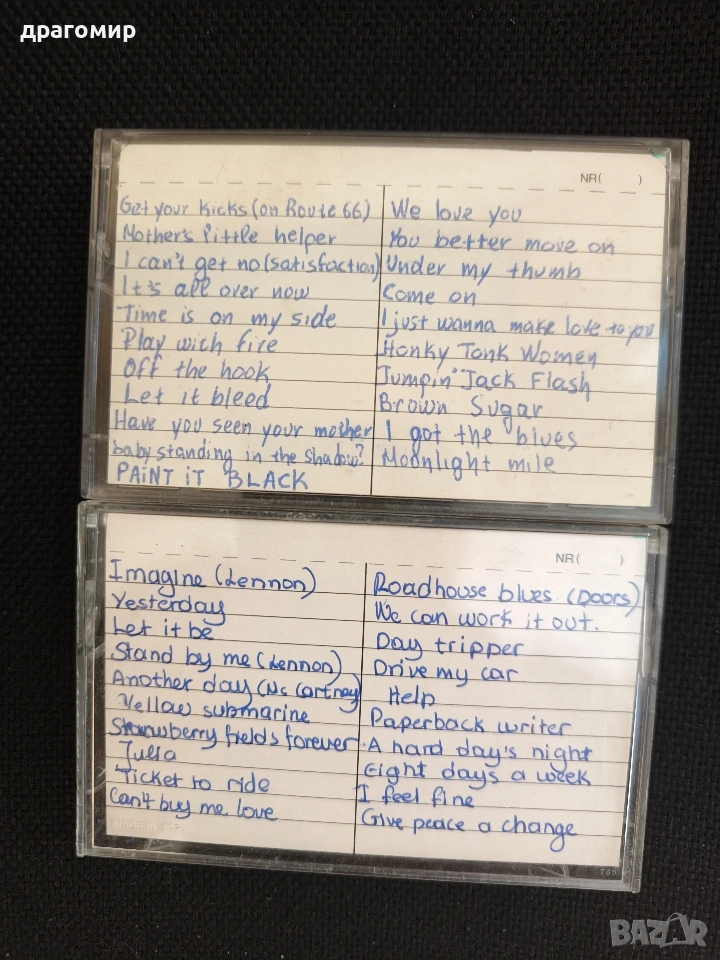 драгомир
NR( )
Get your kicks (on Route 66)
Mother's little helper
I can't get no (satisfaction)
It's all over now
Time is on my side
Play with fire
Off the hook
Let it bleed
Have you seen your mother
baby standing in the shadow?
PAiNT iT BLACK
We love you
You better move on
Under my thumb
Come on
I just wanna make love to you
Honky Tonk Women
Jumpin' Jack Flash
Brown Sugar
I got the blues
Moonlight mile
NR( )
Imagine (Lennon)
Yesterday
Let it be
Stand by me (Lennon)
Another day (Mc Cartney)
Yellow submarine
Strawberry fields forever
Julia
Ticket to ride
Can't buy me love
Roadhouse blues (Doors)
We can work it out.
Day tripper
Drive my car
Help
Paperback writer
A hard day's night
Eight days a week
I feel fine
Give peace a change
BAZAR